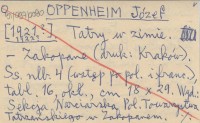 OPPENHEIM Józef
[1927.]
Tatry w zimie.
Zakopane (druk: Kraków).
Ss. nlb. 4 (wstęp po pol. i franc.)
tabl. 16, okl., cm 18 x 24. Wyd:
Sekcja Narciarska Pol. Towarzystwa
Tatrzańskiego w Zakopanem.